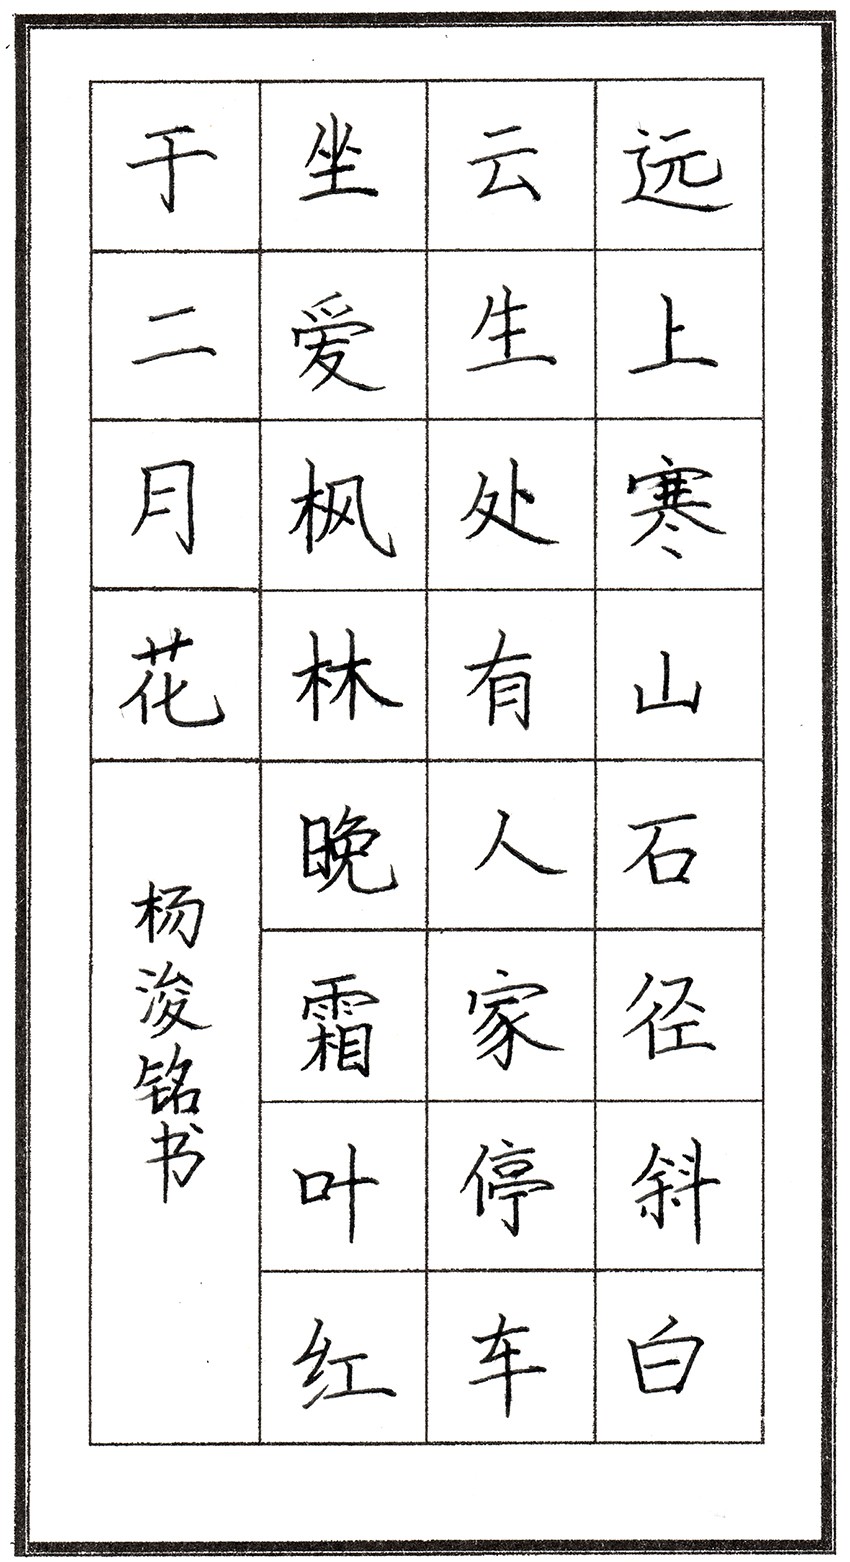 远上寒山石径斜白
云生处有人家停车
坐爱枫林晚霜叶红
于二月花
杨浚铭书